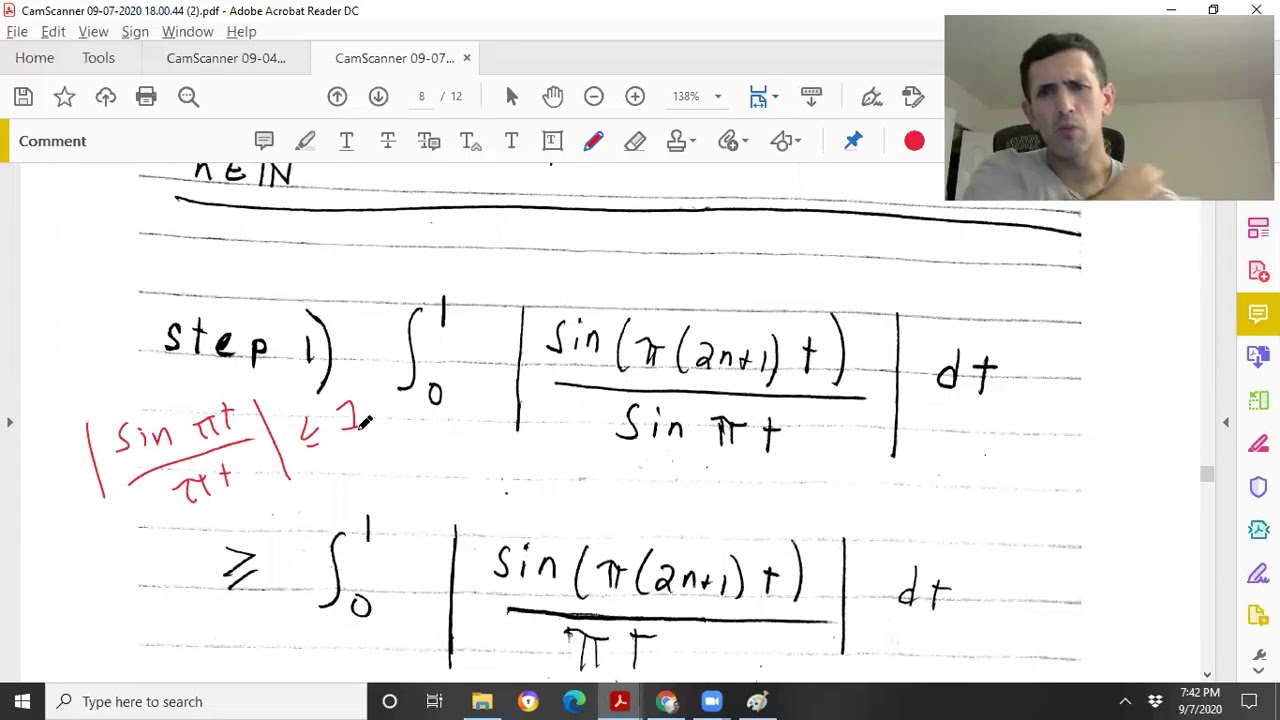 CamScanner 09-07-2020 18.00.44 (2).pdf - Adobe Acrobat Reader DC
File Edit View Sign Window Help
Home Tools CamScanner 09-04... CamScanner 09-07... ×
8 / 12 138%
Comment
n ∈ ℕ
step 1) ∫₀¹ | sin(π(2n+1)t) / sin πt | dt
| sin πt / πt | ≤ 1
≥ ∫₀¹ | sin(π(2n+1)t) / πt | dt
Type here to search
7:42 PM
9/7/2020